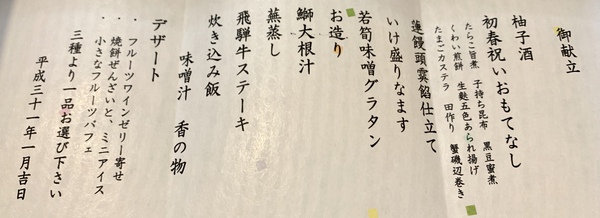 御献立
柚子酒
初春祝いおもてなし
たらこ旨煮　子持ち昆布　黒豆蜜煮
くわい煎餅　生麩五色あられ揚げ
たまごカステラ　田作り　蟹磯辺巻き
蓮饅頭雲餡仕立て
いけ盛りなます
若筍味噌グラタン
お造り
鰤大根汁
蕪蒸し
飛騨牛ステーキ
炊き込み飯
味噌汁　香の物
デザート
・フルーツワインゼリー寄せ
・焼餅ぜんざいと、ミニアイス
・小さなフルーツパフェ
三種より一品お選び下さい
平成三十一年一月吉日